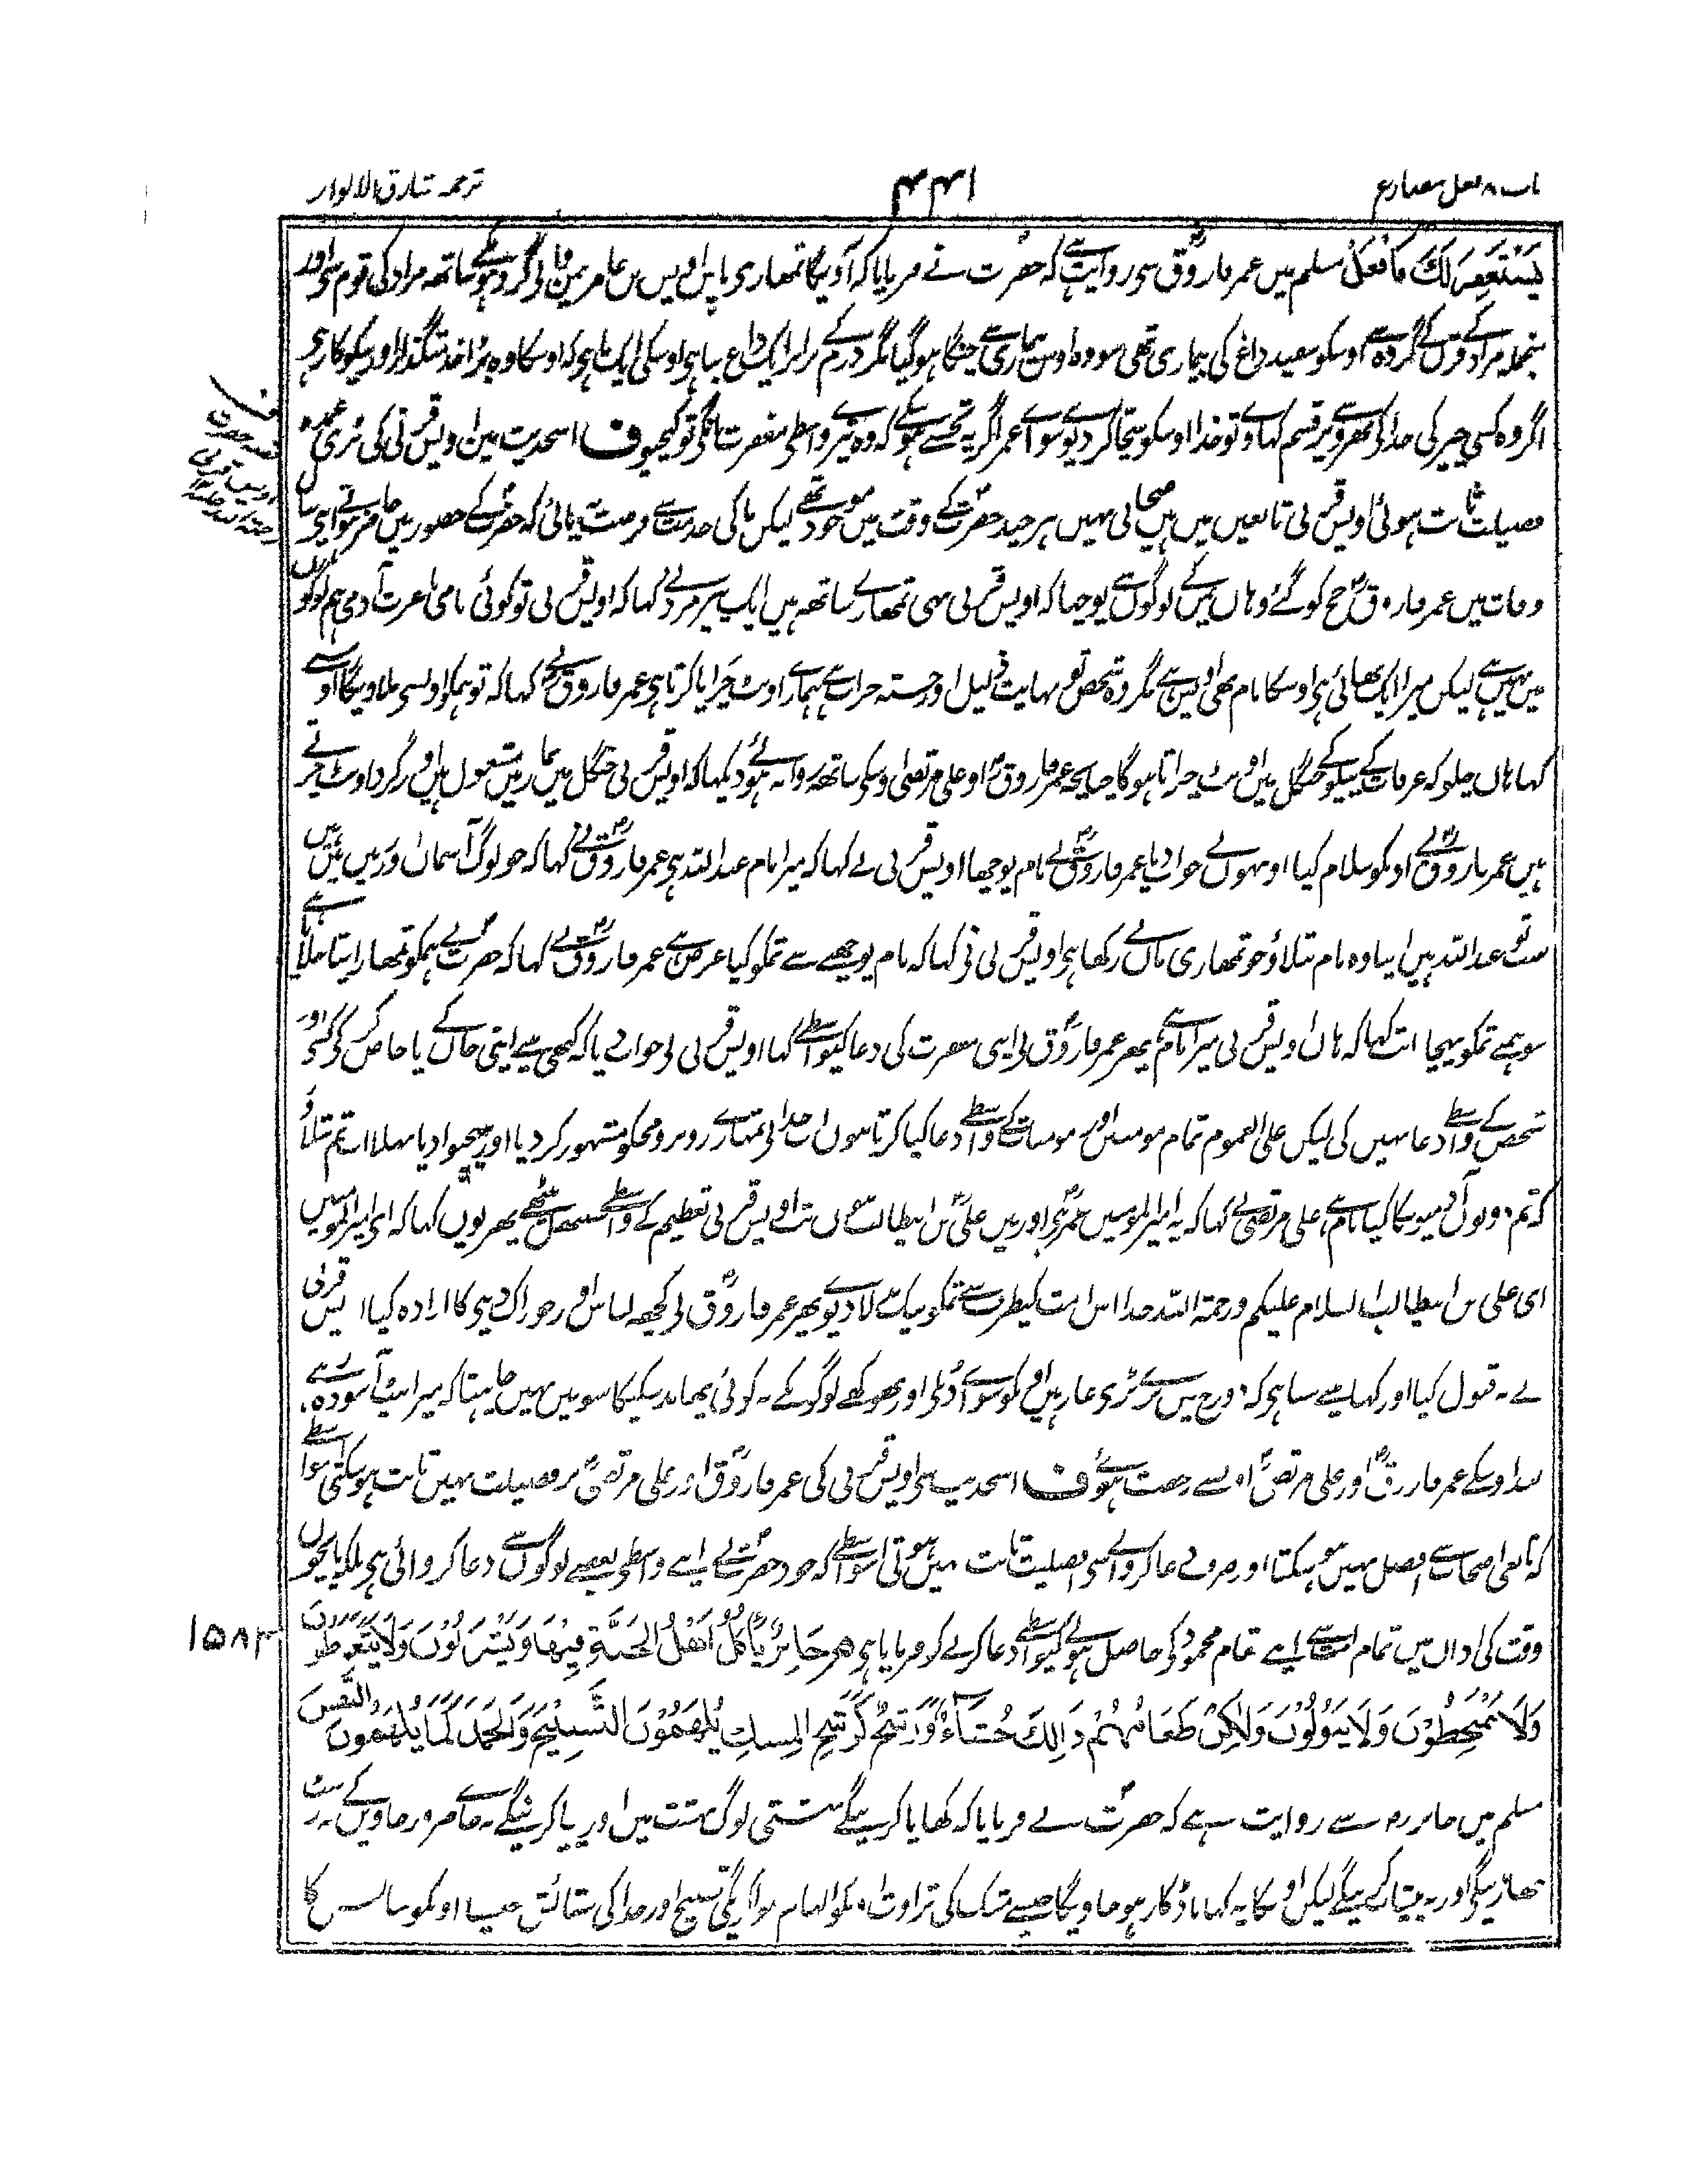 باب ۸ فصل مضارع
۴۴۱
ترجمہ مشارق الانوار
یَسْتَغْفِرَ لَكَ فَافْعَلْ مسلم میں عمر فاروقؓ سے روایت ہے کہ حضرتؐ نے فرمایا کہ آویگا تمھاری پاس اویس بن عامر یمن والی گروہ کے ساتھ مراد کی قوم سے اور
اگر وہ کسی چیز کی خدا کے بھروسے پر قسم کھاوے تو خدا اوسکو سچا کر دیوے سو اے عمر اگر یہ تجھسے ہو سکے کہ وہ تیرے واسطے مغفرت مانگے تو کیجیو ف اس حدیث میں اویس قرنی کی بڑی عمدہ
فضیلت ثابت ہوئی اویس قرنی تابعین میں ہیں صحابی نہیں ہر چند حضرتؐ کے وقت میں موجود تھے لیکن ماں کی خدمت سے فرصت نہ پائی کہ حضرتؐ کے حضور میں حاضر ہوتے
عرفات میں عمر فاروقؓ حج کو گئے وہاں یمن کے لوگوں سے پوچھا کہ اویس قرنی بھی تمھارے ساتھ ہیں ایک پیر مرد نے کہا کہ اویس قرنی تو کوئی نامی عزت آدمی ہم لوگوں
میں نہیں ہے لیکن میرا ایک بھائی ہے اوسکا نام بھی اویس ہے مگر وہ شخص تو نہایت ذلیل اور خستہ خراب ہے ہمارے اونٹ چرایا کرتا ہے عمر فاروقؓ نے کہا کہ تو ہمکو اوس سے ملاویگا اوسنے
کہا ہاں چلو کہ عرفات کے پیلو کے جنگل میں اونٹ چراتا ہوگا چنانچہ عمر فاروقؓ اور علی مرتضیٰؓ اوسکے ساتھ روانہ ہوئے دیکھا کہ اویس قرنی جنگل میں نماز میں مشغول ہیں اور گرد اونٹ چرتے
ہیں عمر فاروقؓ نے اونکو سلام کیا اونھوں نے جواب دیا عمر فاروقؓ نے نام پوچھا اویس قرنی نے کہا کہ میرا نام عبداللہ ہے عمر فاروقؓ نے کہا کہ جو لوگ آسمان اور زمین میں ہیں
سب تو عبداللہ ہیں اپنا وہ نام بتلاؤ جو تمھاری ماں نے رکھا ہے اویس قرنی نے کہا کہ نام پوچھنے سے تمکو کیا غرض ہے عمر فاروقؓ نے کہا کہ حضرتؐ نے ہمکو تمھارا پتا بتلایا ہے
سو ہمنے تمکو پہچانا تب کہا کہ ہاں اویس قرنی میرا نام ہے پھر عمر فاروقؓ نے اپنی مغفرت کی دعا کیواسطے کہا اویس قرنی نے جواب دیا کہ کبھی مینے اپنی جان کے یا خاص کر کے کسی اور
شخص کے واسطے دعا نہیں کی لیکن علی العموم تمام مومنین اور مومنات کے واسطے دعا کیا کرتا ہوں اب خدا نے تمہارے روبرو مجھکو مشہور کر دیا اور پہچنوا دیا بھلا اب تم بتلاؤ
کہ تم دونوں آدمیونکا کیا نام ہے علی مرتضیٰؓ نے کہا کہ یہ امیر المومنین عمرؓ ہے اور میں علیؓ بن ابیطالب ہوں تب اویس قرنی تعظیم کے واسطے سنبھل بیٹھے پھر یوں کہا کہ اے امیر المومنین
اے علی بن ابیطالب السلام علیکم و رحمۃ اللہ خدا اس امت کیطرف سے تمکو نیک بدلا دیوے پھر عمر فاروقؓ نے کچھ لباس اور خوراک دینے کا ارادہ کیا اویس قرنی
نے نہ قبول کیا اور کہا مینے سنا ہے کہ دوزخ میں بڑے بڑے غار ہیں اونکو سوائے دبلے اور بھوکھے لوگوں کے نہ کوئی پھاند سکیگا سو میں نہیں چاہتا کہ میرا پیٹ آسودہ رہے
بعد اوسکے عمر فاروقؓ اور علی مرتضیٰؓ اونسے رخصت ہوئے ف اس حدیث سے اویس قرنی کی عمر فاروقؓ اور علی مرتضیٰؓ پر فضیلت نہیں ثابت ہو سکتی اسواسطے
کہ تابعی اصحاب سے افضل نہیں ہو سکتا اور صرف دعا کروانے سے فضیلت ثابت نہیں ہوتی اسواسطے کہ خود حضرتؐ نے اپنے واسطے بعضے لوگوں سے دعا کروائی ہے بلکہ پانچوں
وقت کی اذان میں تمام امت سے اپنے مقام محمود کے حاصل ہونے کیواسطے دعا کرنے کو فرمایا ہے هـ جَابِرٌ یَاْكُلُ اَهْلُ الجَنَّةِ فِیْهَا وَیَشْرَبُوْنَ وَلَا یَتَغَوَّطُوْنَ
۱۵۸۳
وَلَا یَمْتَخِطُوْنَ وَلَا یَبُوْلُوْنَ وَلٰكِنْ طَعَامُهُمْ ذَالِكَ جُشَاءٌ وَّرَشْحٌ كَرَشْحِ المِسْكِ یُلْهَمُوْنَ التَّسْبِیْحَ وَالْحَمْدَ كَمَا یُلْهَمُوْنَ النَّفَسَ
مسلم میں جابرؓ سے روایت ہے کہ حضرتؐ نے فرمایا کہ کھایا کرینگے بہشتی لوگ بہشت میں اور پیا کرینگے نہ جائے ضرور جاوینگے نہ رینٹ
جھاڑینگے اور نہ پیشاب کرینگے لیکن اونکا یہ کھانا ڈکار ہو جاویگا جیسے مشک کی تراوت اونکو الہام ہوا کریگی تسبیح اور خدا کی ستائش جیسا اونکو سانس کا